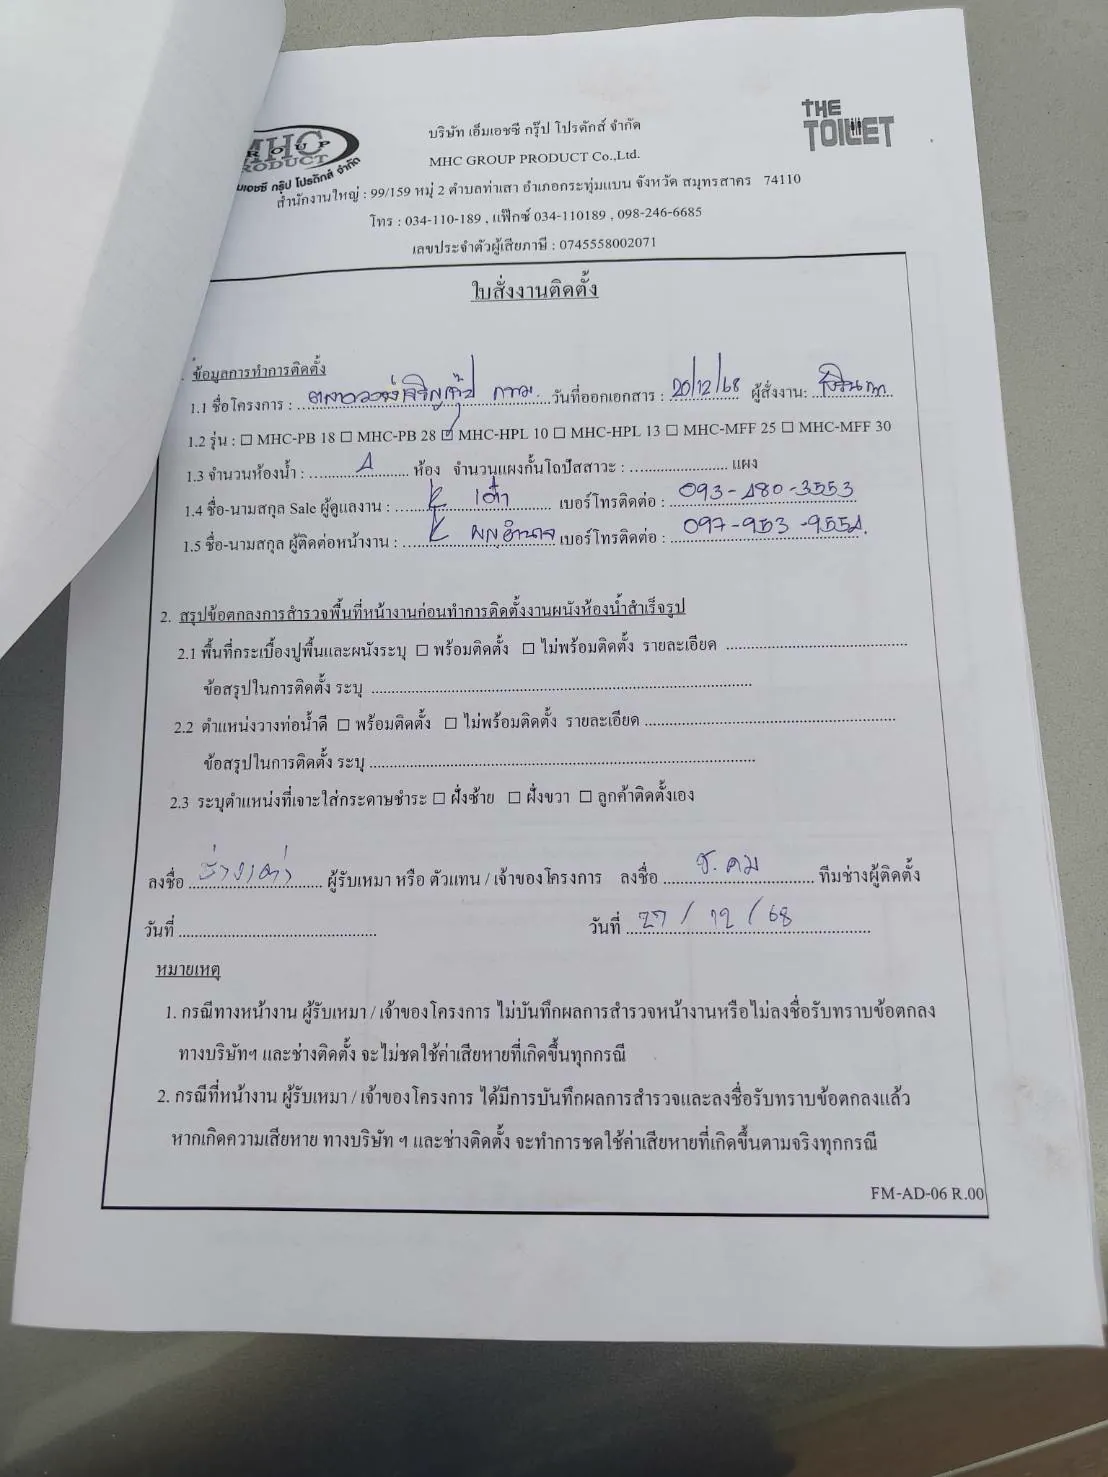 MHC
GROUP
PRODUCT
เอชซี กรุ๊ป โปรดักส์ จำกัด
THE
TOILET
บริษัท เอ็มเอชซี กรุ๊ป โปรดักส์ จำกัด
MHC GROUP PRODUCT Co.,Ltd.
สำนักงานใหญ่ : 99/159 หมู่ 2 ตำบลท่าเสา อำเภอกระทุ่มแบน จังหวัด สมุทรสาคร 74110
โทร : 034-110-189 , แฟ๊กซ์ 034-110189 , 098-246-6685
เลขประจำตัวผู้เสียภาษี : 0745558002071
ใบสั่งงานติดตั้ง
. ข้อมูลการทำการติดตั้ง
1.1 ชื่อโครงการ : วันที่ออกเอกสาร : 20/12/68 ผู้สั่งงาน:
1.2 รุ่น : ☐ MHC-PB 18 ☐ MHC-PB 28 ☑ MHC-HPL 10 ☐ MHC-HPL 13 ☐ MHC-MFF 25 ☐ MHC-MFF 30
1.3 จำนวนห้องน้ำ : 4 ห้อง จำนวนแผงกั้นโถปัสสาวะ : แผง
1.4 ชื่อ-นามสกุล Sale ผู้ดูแลงาน : เบอร์โทรติดต่อ : 093-480-3553
1.5 ชื่อ-นามสกุล ผู้ติดต่อหน้างาน : เบอร์โทรติดต่อ : 097-953-9554
2. สรุปข้อตกลงการสำรวจพื้นที่หน้างานก่อนทำการติดตั้งงานผนังห้องน้ำสำเร็จรูป
2.1 พื้นที่กระเบื้องปูพื้นและผนังระบุ ☐ พร้อมติดตั้ง ☐ ไม่พร้อมติดตั้ง รายละเอียด
ข้อสรุปในการติดตั้ง ระบุ
2.2 ตำแหน่งวางท่อน้ำดี ☐ พร้อมติดตั้ง ☐ ไม่พร้อมติดตั้ง รายละเอียด
ข้อสรุปในการติดตั้ง ระบุ
2.3 ระบุตำแหน่งที่เจาะใส่กระดาษชำระ ☐ ฝั่งซ้าย ☐ ฝั่งขวา ☐ ลูกค้าติดตั้งเอง
ลงชื่อ ช่างเต่า ผู้รับเหมา หรือ ตัวแทน / เจ้าของโครงการ ลงชื่อ ช. คม ทีมช่างผู้ติดตั้ง
วันที่ วันที่ 27 / 12 / 68
หมายเหตุ
1. กรณีทางหน้างาน ผู้รับเหมา / เจ้าของโครงการ ไม่บันทึกผลการสำรวจหน้างานหรือไม่ลงชื่อรับทราบข้อตกลง
ทางบริษัทฯ และช่างติดตั้ง จะไม่ชดใช้ค่าเสียหายที่เกิดขึ้นทุกกรณี
2. กรณีที่หน้างาน ผู้รับเหมา / เจ้าของโครงการ ได้มีการบันทึกผลการสำรวจและลงชื่อรับทราบข้อตกลงแล้ว
หากเกิดความเสียหาย ทางบริษัท ฯ และช่างติดตั้ง จะทำการชดใช้ค่าเสียหายที่เกิดขึ้นตามจริงทุกกรณี
FM-AD-06 R.00